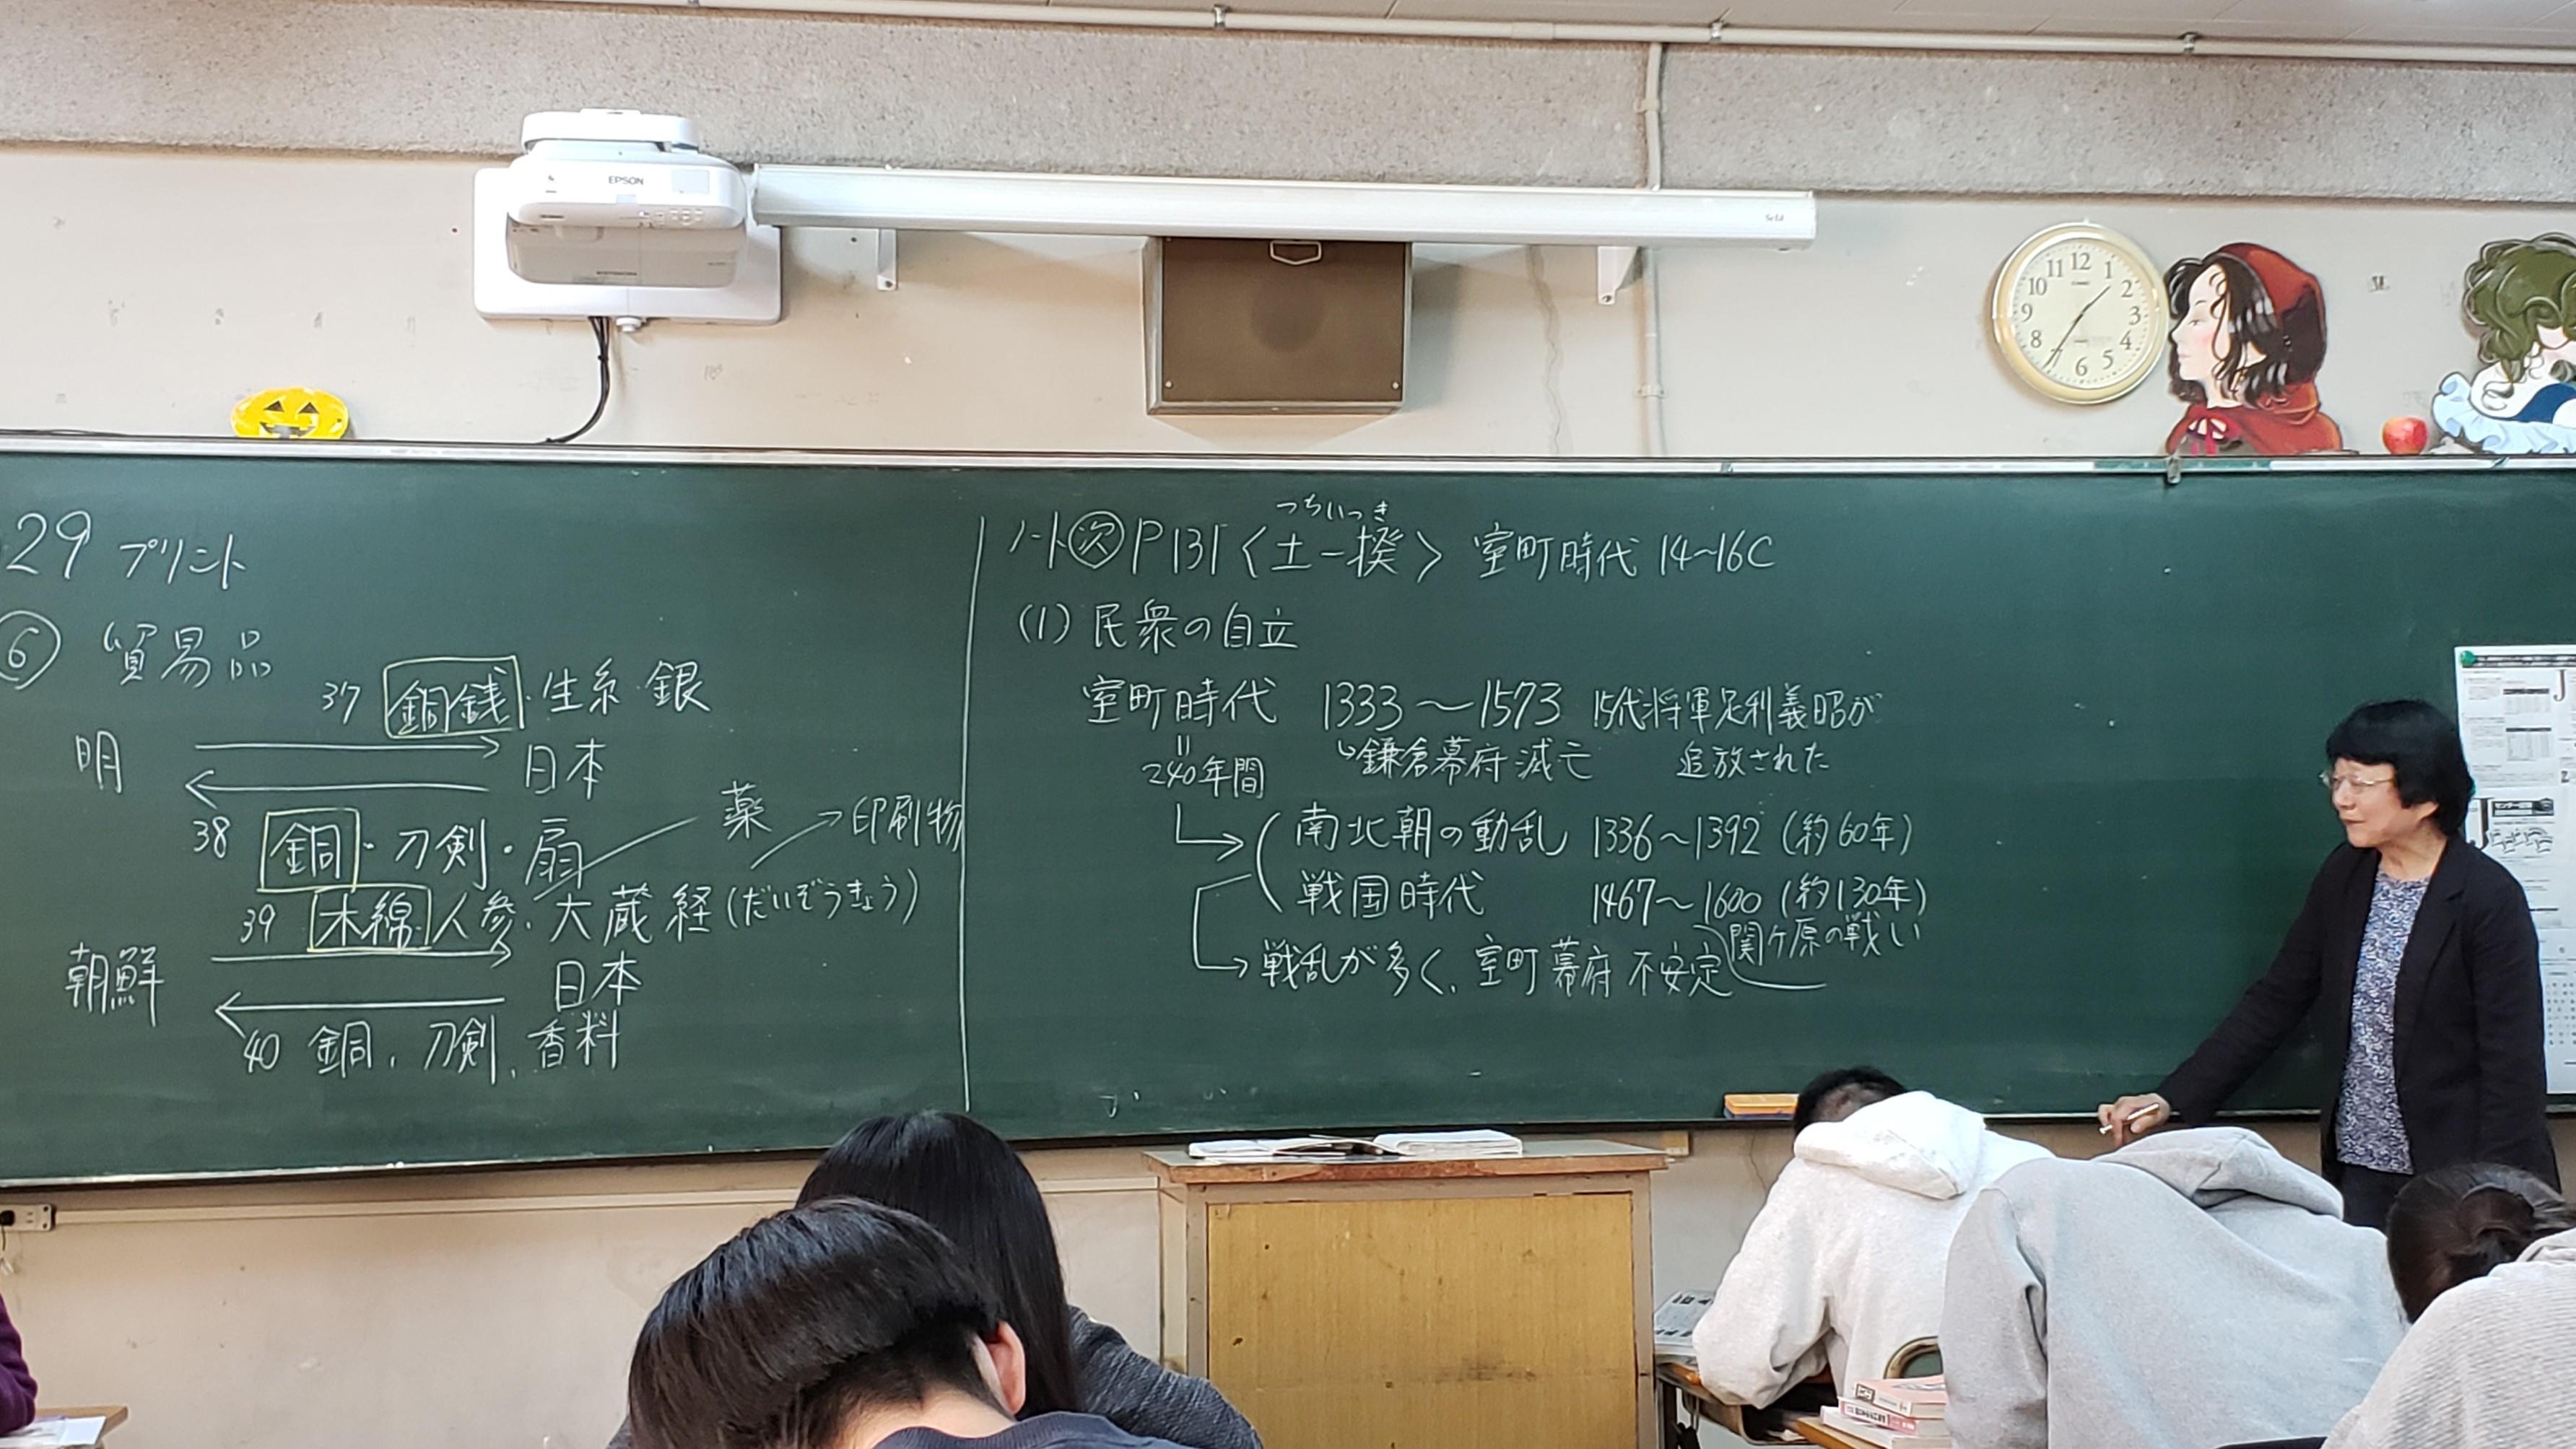 EPSON
11 12 1
10 2
9 3
8 4
6 5
29 プリント
⑥ 貿易品
37 銅銭・生糸・銀
明 日本
38 銅・刀剣・扇
薬 →印刷物
39 木綿・人参・大蔵経(だいぞうきょう)
朝鮮 日本
40 銅、刀剣、香料
つちいっき
ノート㋨P131〈土一揆〉 室町時代 14~16C
(1) 民衆の自立
室町時代 1333~1573 15代将軍足利義昭が
追放された
↳鎌倉幕府滅亡
240年間
南北朝の動乱 1336~1392 (約60年)
戦国時代 1467~1600 (約130年)
関ヶ原の戦い
→戦乱が多く、室町幕府 不安定